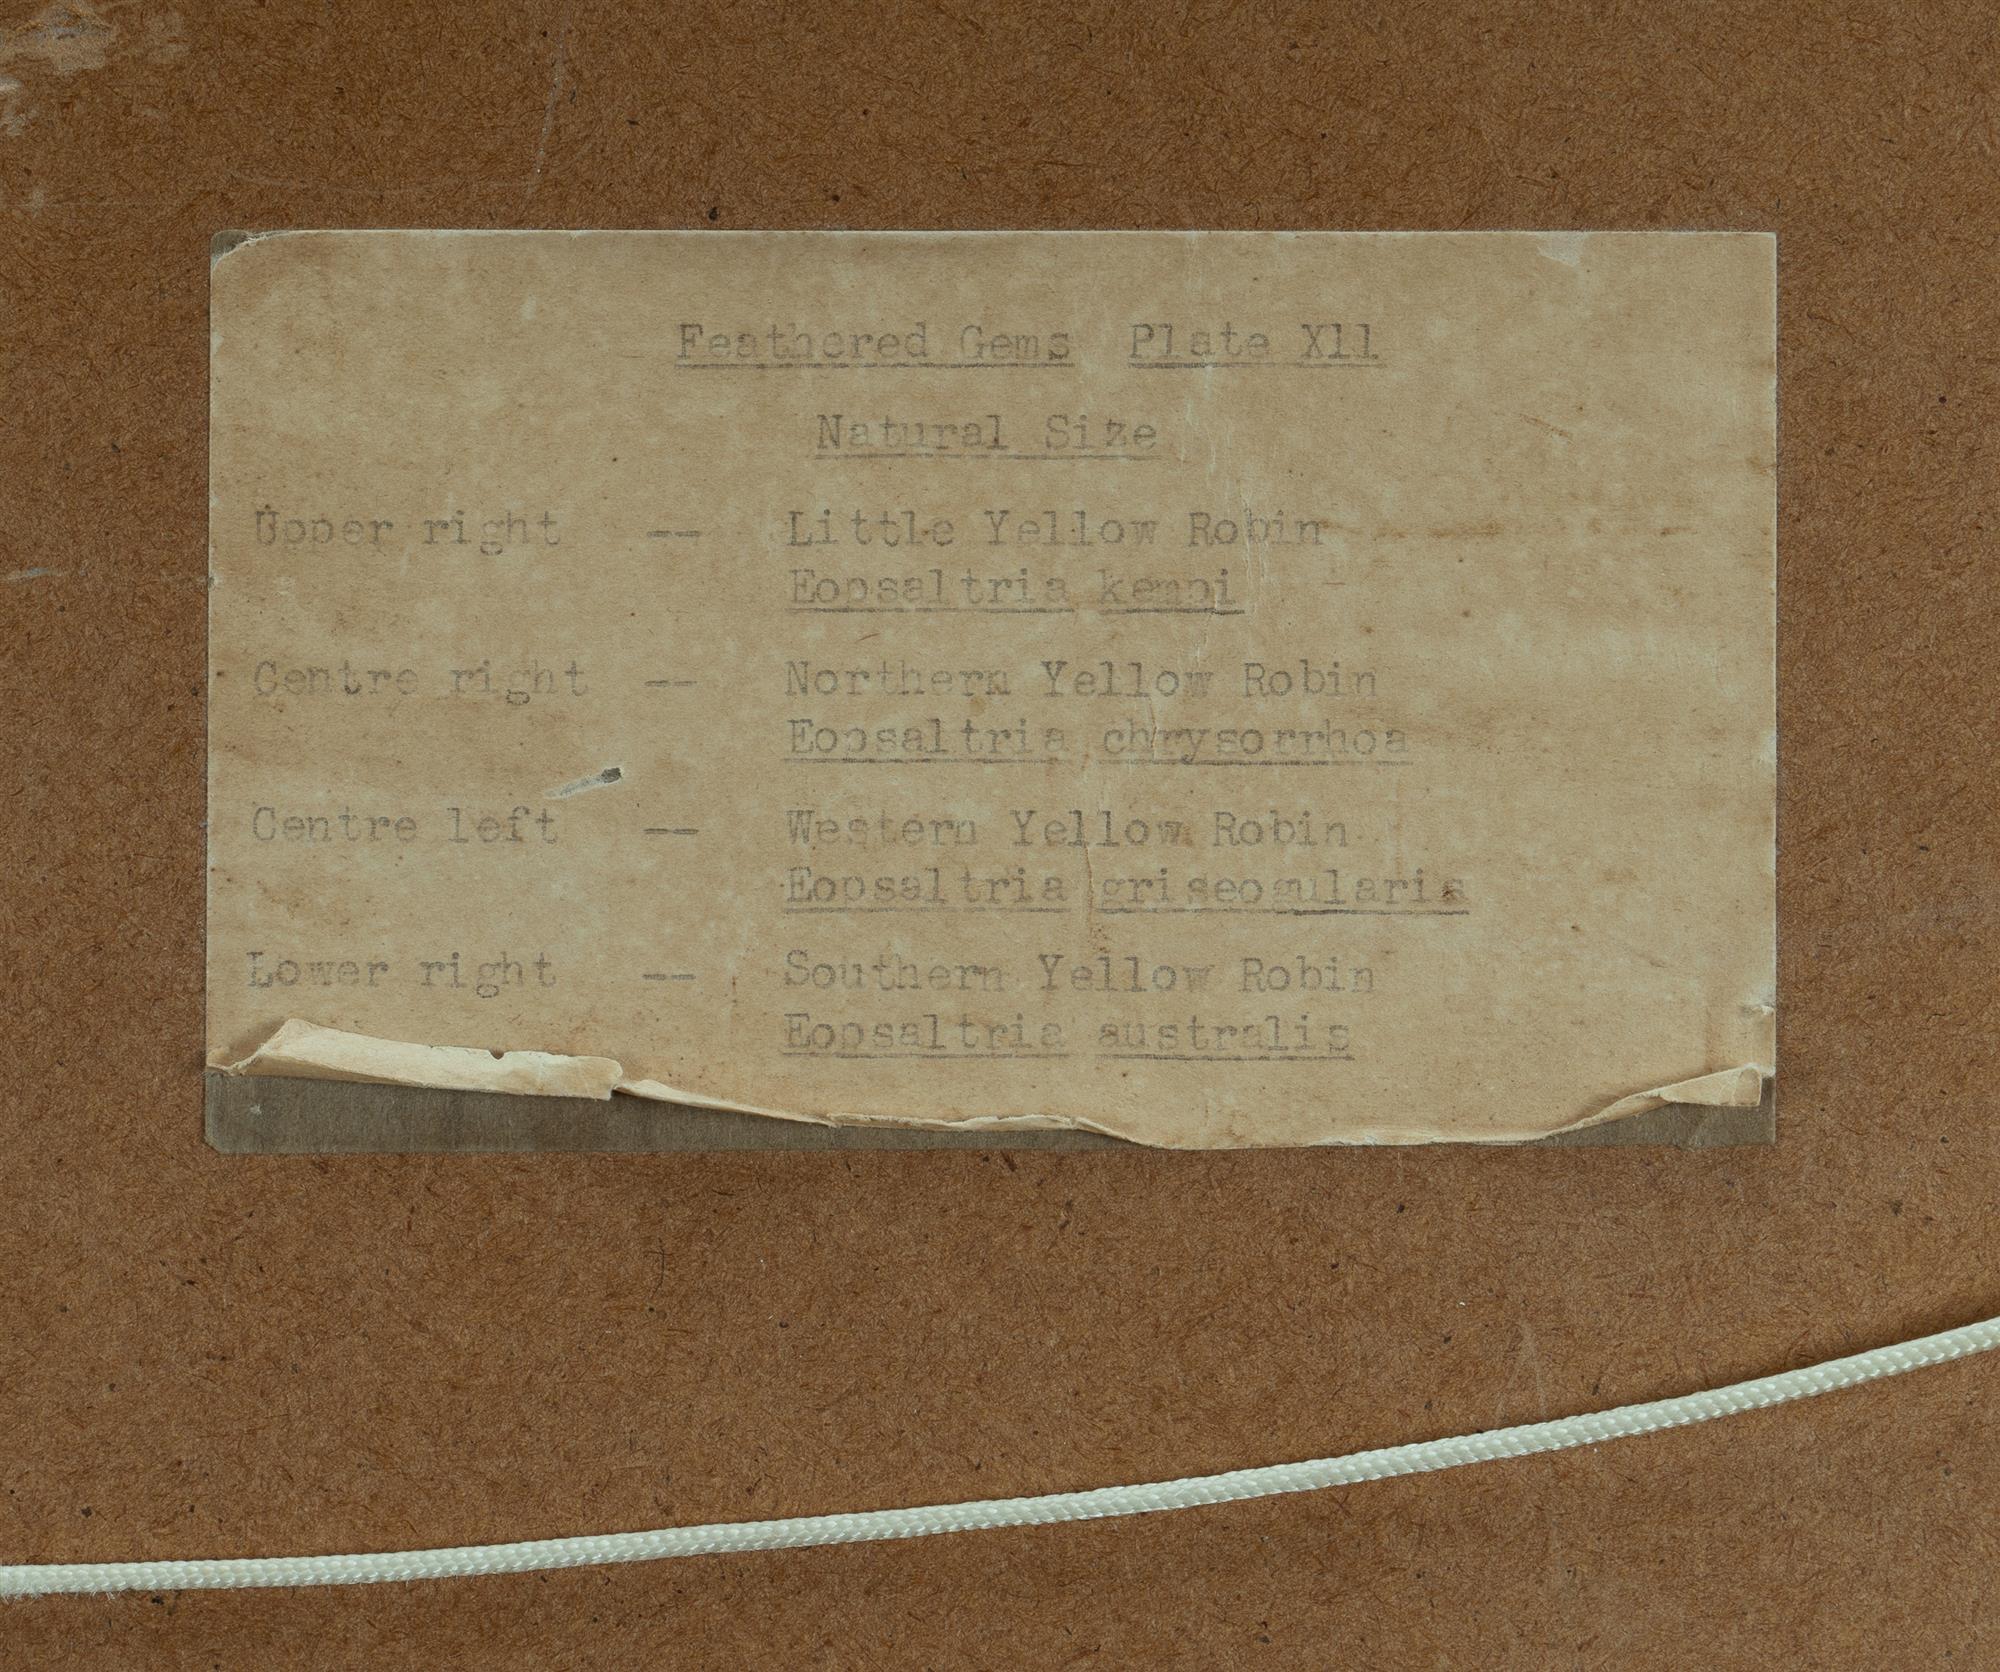 Feathered Gems Plate Xll
Natural Size
Upper right -- Little Yellow Robin
Eopsaltria kempi
Centre right -- Northern Yellow Robin
Eopsaltria chrysorrhoa
Centre left -- Western Yellow Robin
Eopsaltria griseogularis
Lower right -- Southern Yellow Robin
Eopsaltria australis